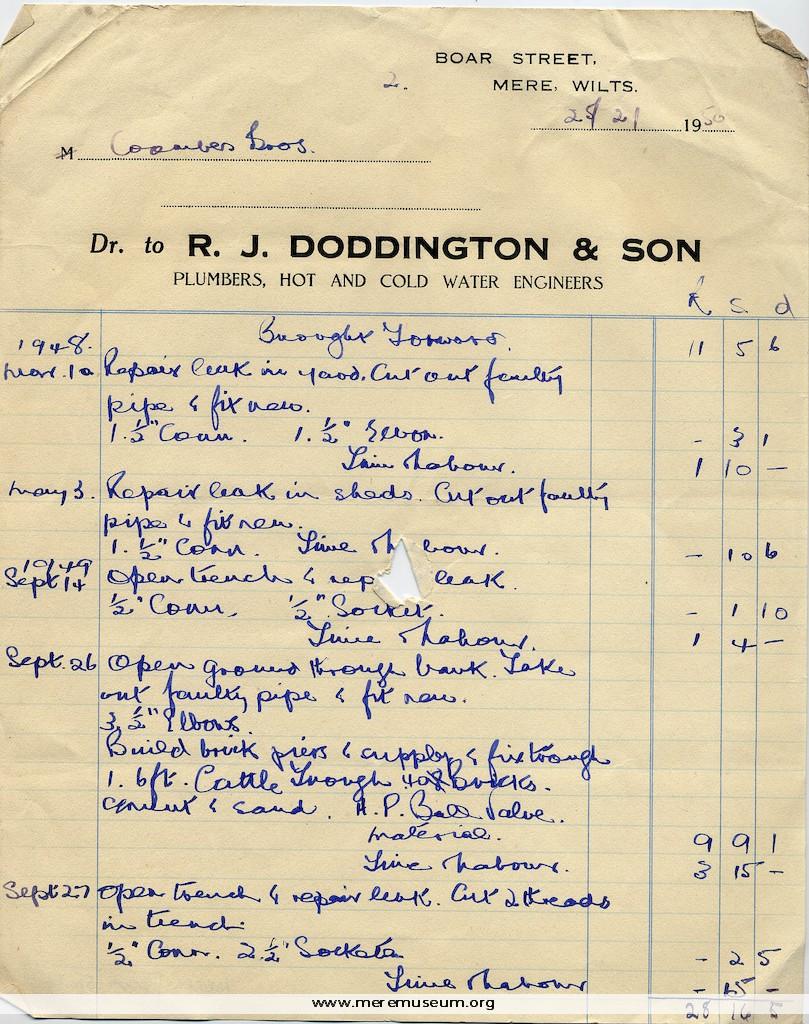 BOAR STREET,
2. MERE, WILTS.
28/21 1950
M Coombes Bros.
Dr. to R. J. DODDINGTON & SON
PLUMBERS, HOT AND COLD WATER ENGINEERS
£ s. d
Brought Forward. 11 5 6
1948.
Mar. 10 Repair leak in yard. Cut out faulty
pipe & fix new.
1. ½" Conn. 1. ½" Elbow. - 3 1
Time & Labour. 1 10 -
May 3. Repair leak in sheds. Cut out faulty
pipe & fix new.
1. ½" Conn. Time & bour. - 10 6
1949
Sept 14 Open trench & rep leak.
½" Conn. ½" Socket. - 1 10
Time & Labour. 1 4 -
Sept. 26 Open ground through bank. Take
out faulty pipe & fit new.
3. ½" Elbows.
Build brick piers & supply & fix trough
1. 6ft. Cattle Trough 408 bricks.
Cement & sand. H.P. Ball Valve.
Material. 9 9 1
Time & Labour. 3 15 -
Sept 27 Open trench & repair leak. Cut 2 threads
in trench.
½" Conn. 2. ½" Sockets - 2 5
Time & Labour - 15 -
28 16 5
www.meremuseum.org